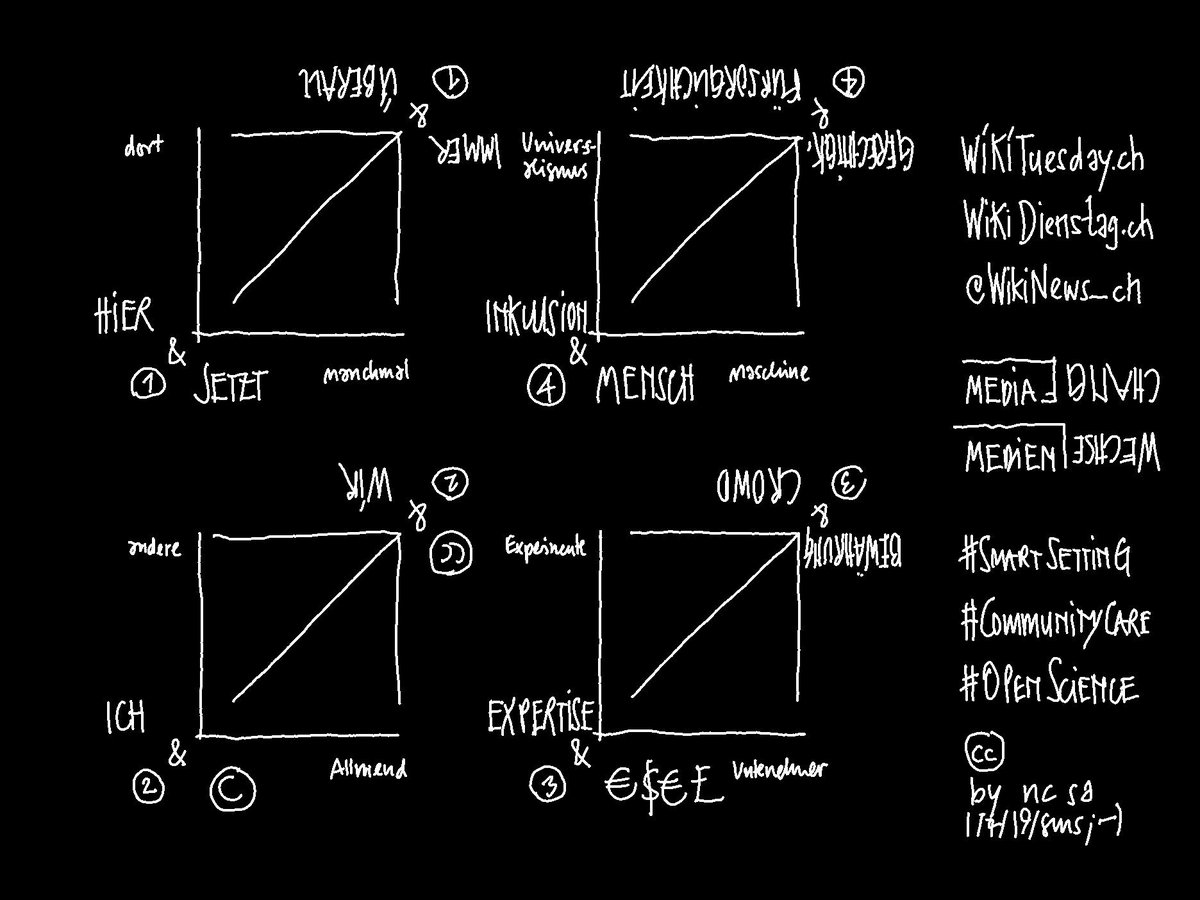 ÜBERALL ①
&
IMMER
dort
HIER
&
① JETZT manchmal
FÜRSORGLICHKEIT ④
&
GERECHTIGK.
Univers-
alismus
INKLUSION
&
④ MENSCH maschine
WiKiTuesday.ch
WiKiDienstag.ch
@WikiNews_ch
MEDiA CHANGE
MEDiEN WECHSEL
WIR ②
&
CC
andere
ICH
&
② © Allmend
CROWD ③
&
BEWÄHRUNG
Experimente
EXPERTiSE
&
③ €$€£ Unternehmer
#SMARTSETTiNG
#COMMUNiTYCARE
#OPENSCIENCE
cc
by nc sa